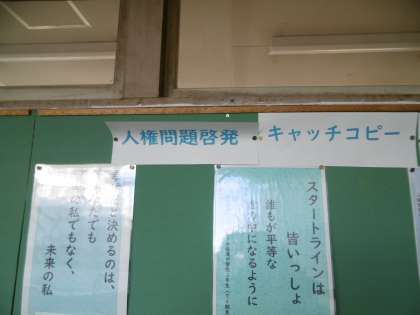 人権問題啓発
キャッチコピー
スタートラインは
皆いっしょ
誰もが平等な
世の中になるように
決めるのは、
でも
私でもなく、
未来の私